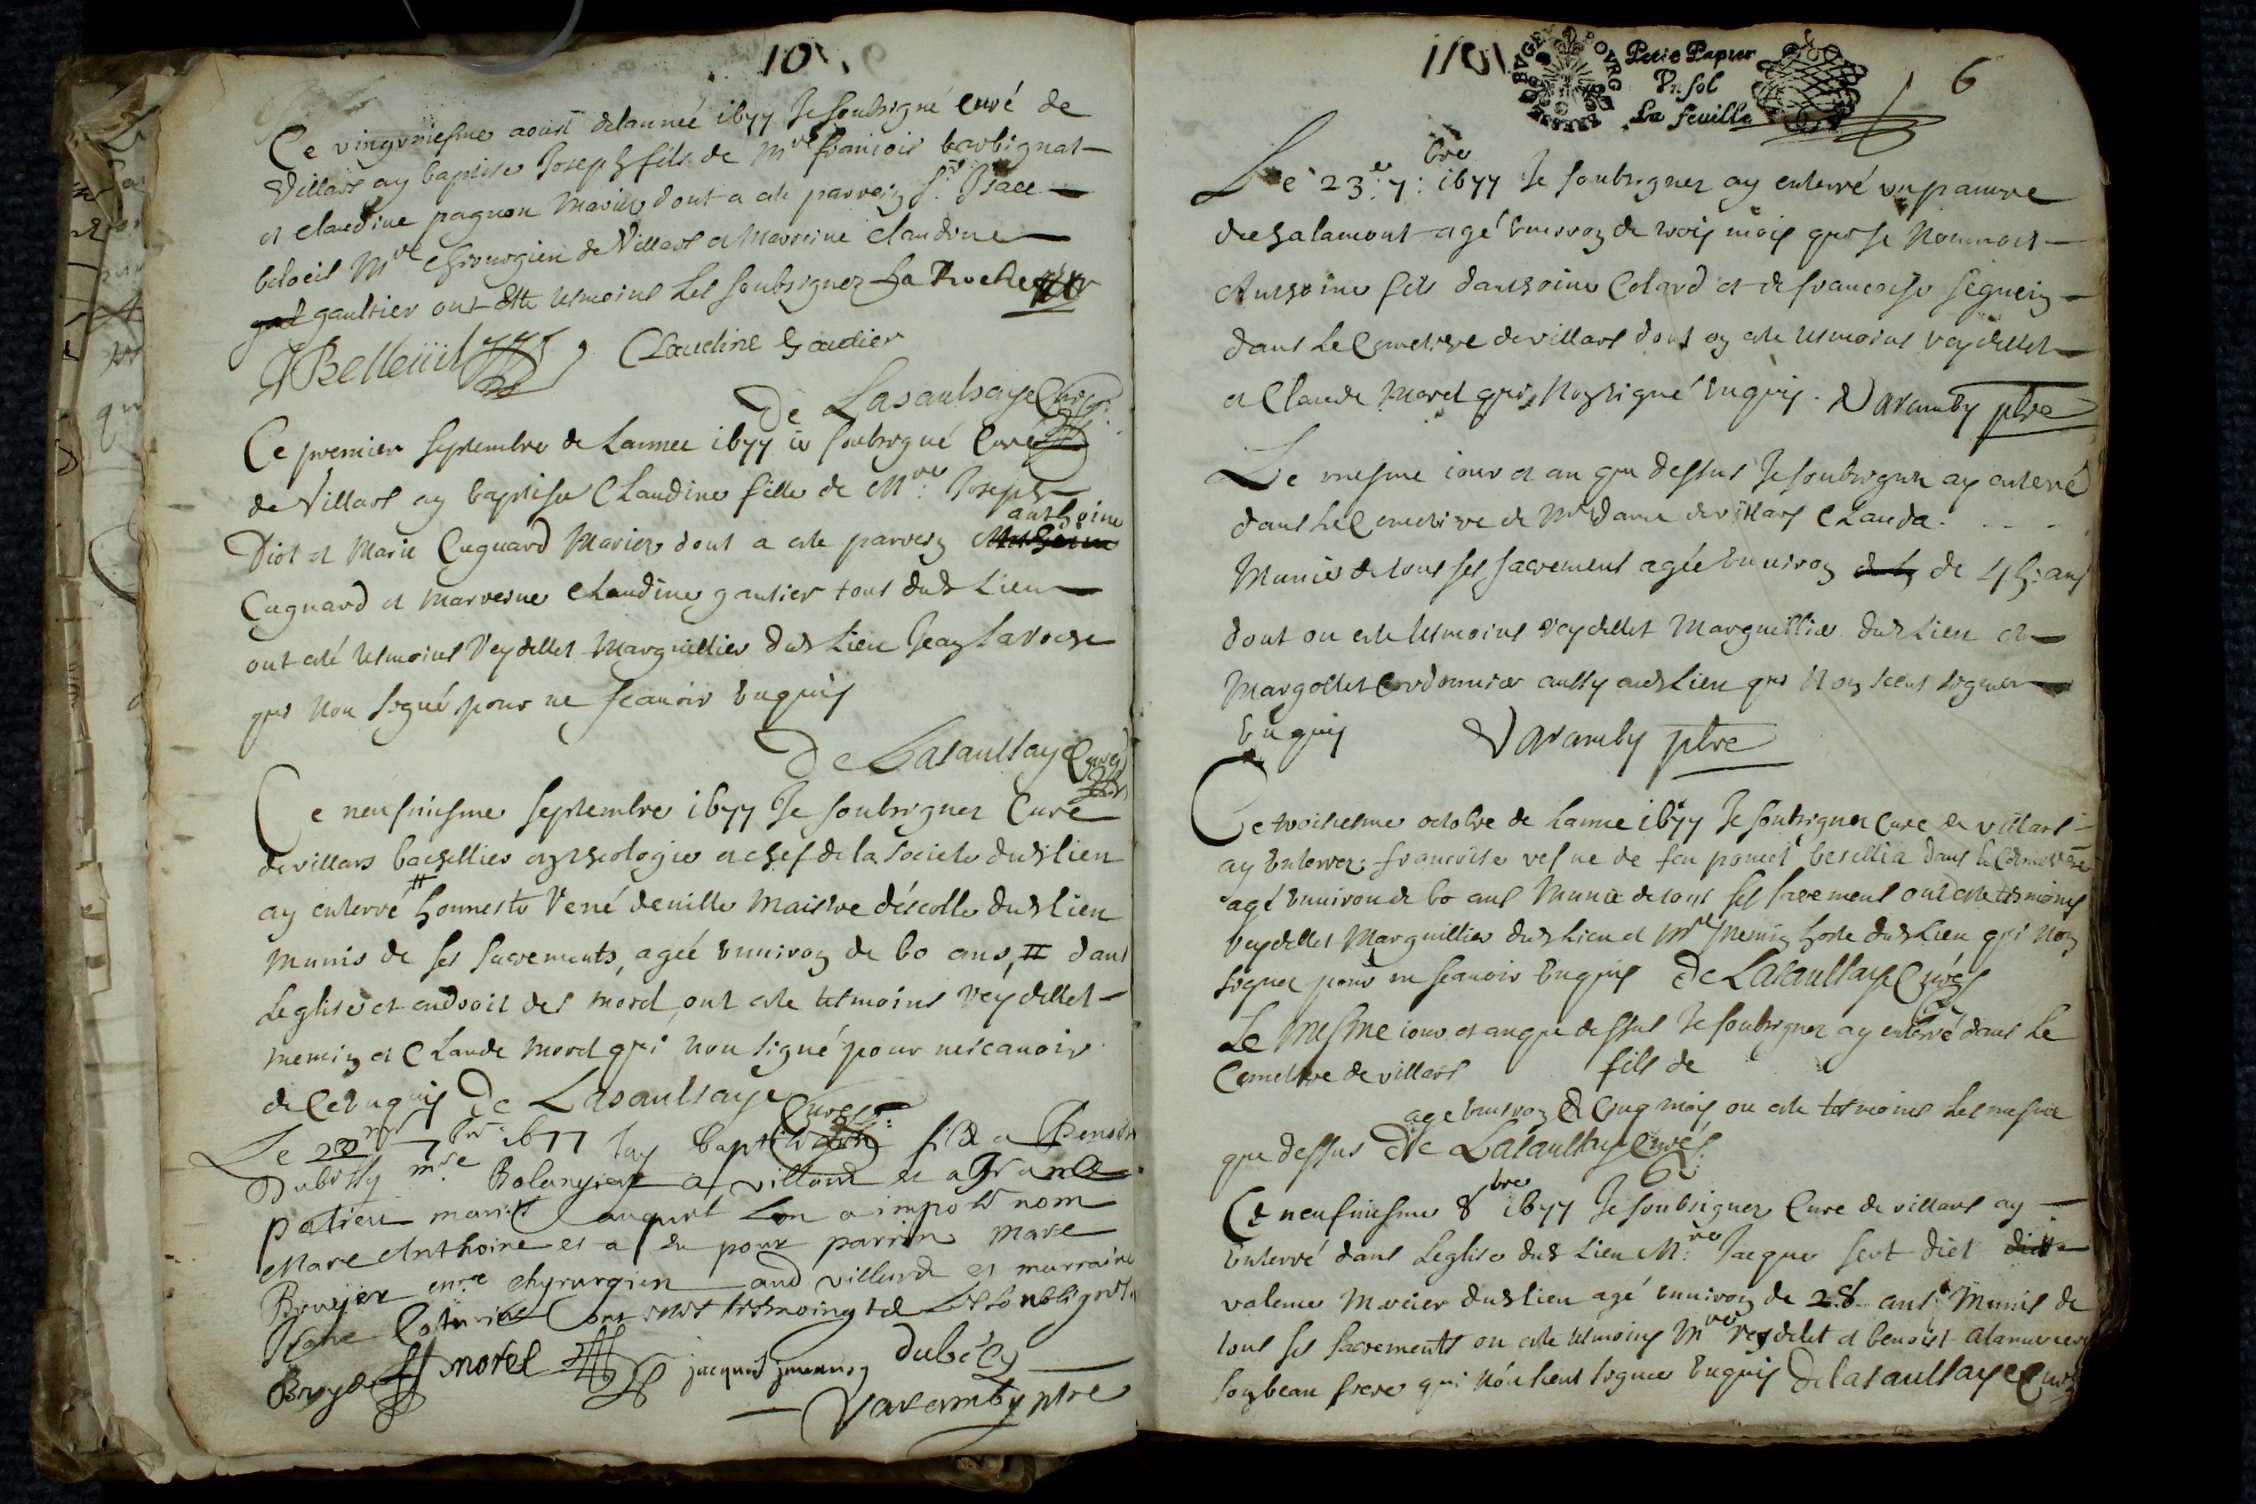 10
Ce vingt uniesme aoust delannée 1677 Je soubsigné Curé de
Villars ay baptise Joseph fils de Mre francois barbignat
et claudine pagnon Mariez dont a ete parrein Sr. Isaac
beloeil Mre chirurgien de Villars et Marreine claudine
gaultier ont Esté tesmoins Les soubsignez La Roche
Belleüil Claudine Gautier
De Lasaulsaye Curé
Ce premier septembre de Lannee 1677 ie soubsigné Curé
de Villars ay baptise Claudine fille de Mre. Joseph
Diot et Marie Cugnard Mariez dont a ete parrein anthoine
Cugnard et marreine Claudine gautier tous dud Lieu
ont eté tesmoins Veydellet Marguillier dud Lieu Jean Laroche
qui Non signé pour ne scavoir Enquis
De Lasaulsaye Curé
Ce neufviesme septembre 1677 Je soubsignez Curé
de villars bachellier en theologie et chef de la societe dud lien
ay enterré honneste René deville Maistre descolle dud Lieu
munis de ses sacrements, ageé Environ de 60 ans, dans
Leglise et endroit des mord, ont ete tesmoins Veydellet
memin et Claude morel qui Non signé pour nescavoir
de Ce Enquis De Lasaulsaye Curé
Le 22me 7bre 1677 Jay baptisé fils a Benoist
Dubessy mre Bolangier a villard et a
patieu mariés auquel Lon a imposé nom
Marc Anthoine et a eu pour parrin Marc
Bruyer mre chyrurgien aud villard et marraine
ont esté tesmoingts Les soubsignés
Bruyer morel jacques Dubessy
Varamby ptre
11
BOURG
Petit Papier
Un sol
La feuille
6
Le 23e. 7bre 1677 Je soubsignez ay enterré un pauvre
de chalamont agé Environ de trois mois qui se Nommoit
Anthoine fils danthoine Colard et de francoise seguein
dans Le Cemetiere de villars dont on ete tesmoins veydellet
et Claude Morel qui Nosigné Enquis. Varamby ptre
Le mesme iour et an que dessus Je soubsignez ay enterré
dans Le Cemetiere de Nre dame de villars Clauda . . . .
Munie de tous ses sacrement ageé Environ de 45: ans
dont on ete tesmoins veydellet Marguillier dud Lieu et
Margollet Cordonnier aussy aud Lieu qui Non sceut signer
Enquis Varamby ptre
Ce troisiesme octobre de Lanne 1677 Je soubsignez Cure de villars
ay Enterrez francoise vesve de feu poncet besellia dans Le Cemetiere
agé Environ de 60 ans Munie de tous ses sacrement ont ete tesmoins
veydellet Marguillier dud Lieu et Mre memin hoste dud Lieu qui Non
signez pour ne scavoir Enquis De Lasaulsaye Curé
Le mesme iour et an que dessus Je soubsignez ay enterré dans Le
Cemetiere de villars fils de
age Environ de Cinq mois on ete tesmoins Les mesme
que dessus De Lasaulsaye Curé
Ce neufviesme 8bre 1677 Je soubsignez Cure de villars ay
Enterré dans Leglise dud Lieu Mre Jacque sert diet
valence Mercier dud lieu agé Environ de 28 ans Munis de
tous ses sacrements on ete tesmoins Mre veydelet et benoist
son beau frere qui Non sceut signer Enquis Delasaulsaye Curé